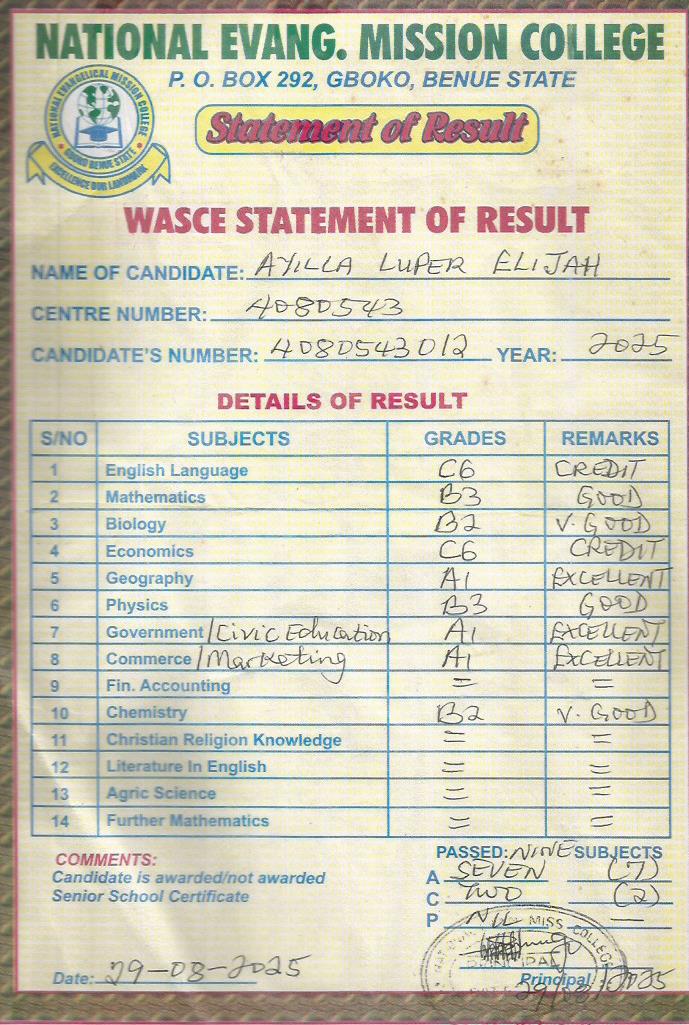 NATIONAL EVANG. MISSION COLLEGE
P. O. BOX 292, GBOKO, BENUE STATE
NATIONAL EVANGELICAL MISSION COLLEGE
GBOKO BENUE STATE
EXCELLENCE OUR LANDMARK
Statement of Result
WASCE STATEMENT OF RESULT
NAME OF CANDIDATE: AYILLA LUPER ELIJAH
CENTRE NUMBER: 4080543
CANDIDATE'S NUMBER: 4080543012 YEAR: 2025
DETAILS OF RESULT
S/NO SUBJECTS GRADES REMARKS
1 English Language C6 CREDIT
2 Mathematics B3 GOOD
3 Biology B2 V. GOOD
4 Economics C6 CREDIT
5 Geography A1 EXCELLENT
6 Physics B3 GOOD
7 Government/Civic Education A1 EXCELLENT
8 Commerce/Marketing A1 EXCELLENT
9 Fin. Accounting = =
10 Chemistry B2 V. GOOD
11 Christian Religion Knowledge = =
12 Literature In English = =
13 Agric Science = =
14 Further Mathematics = =
COMMENTS:
Candidate is awarded/not awarded
Senior School Certificate
PASSED: NINE SUBJECTS
A SEVEN (7)
C TWO (2)
P NIL —
MISS COLLEGE
PRINCIPAL
Date: 29-08-2025
Principal
29/08/2025